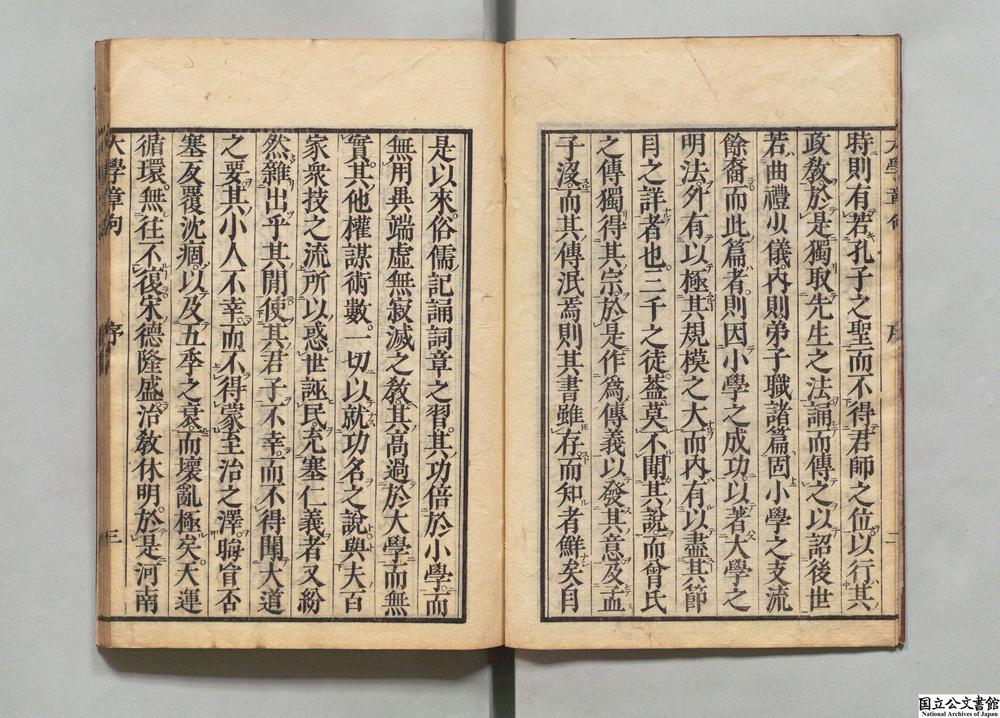 時則有若孔子之聖而不得君師之位以行其
政教於是獨取先生之法誦而傳之以詔後世
若曲禮少儀內則弟子職諸篇固小學之支流
餘裔而此篇者則因小學之成功以著大學之
明法外有以極其規模之大而內有以盡其節
目之詳者也三千之徒葢莫不聞其說而曾氏
之傳獨得其宗於是作爲傳義以發其意及孟
子沒而其傳泯焉則其書雖存而知者鮮矣自
是以來俗儒記誦詞章之習其功倍於小學而
無用異端虛無寂滅之教其高過於大學而無
實其他權謀術數一切以就功名之說與夫百
家衆技之流所以惑世誣民充塞仁義者又紛
然雜出乎其閒使其君子不幸而不得聞大道
之要其小人不幸而不得蒙至治之澤晦盲否
塞反覆沈痼以及五季之衰而壞亂極矣天運
循環無往不復宋德隆盛治教休明於是河南
大學章句 序 三
国立公文書館
National Archives of Japan